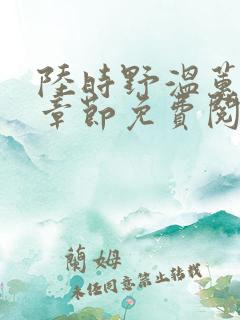 陸時野溫蕙
章節免費閱
蘭姆
未经同意禁止转载